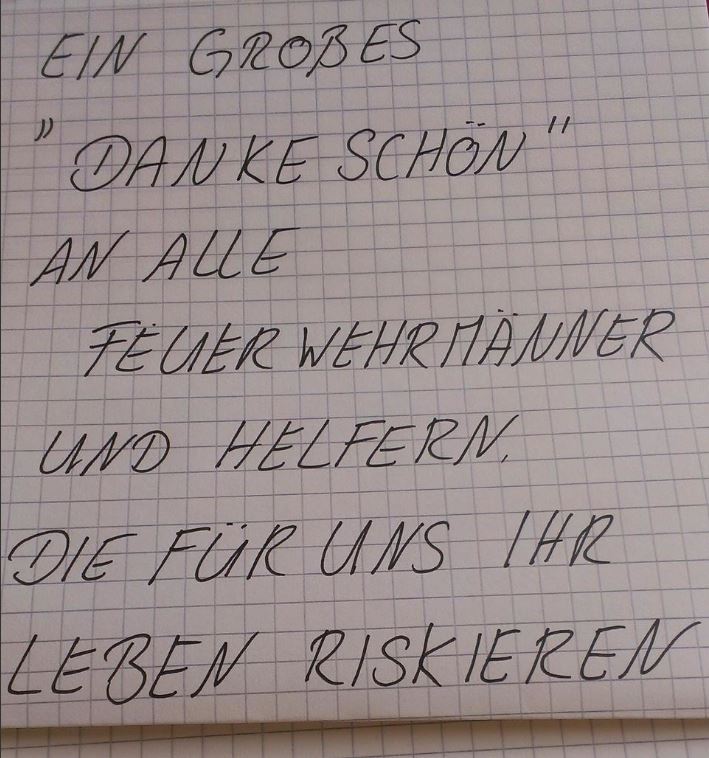 EIN GROßES
"DANKE SCHÖN"
AN ALLE
FEUERWEHRMÄNNER
UND HELFERN.
DIE FÜR UNS IHR
LEBEN RISKIEREN